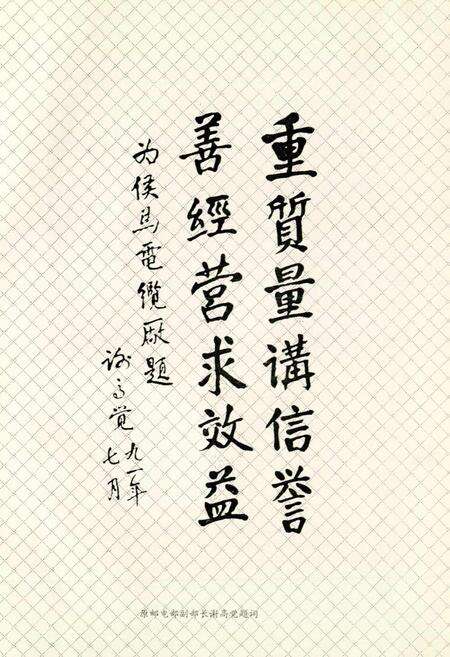 重質量講信誉
善經营求效益
为侯馬電纜厰題
谢高觉 九一年
七月
原邮电部副部长谢高觉题词